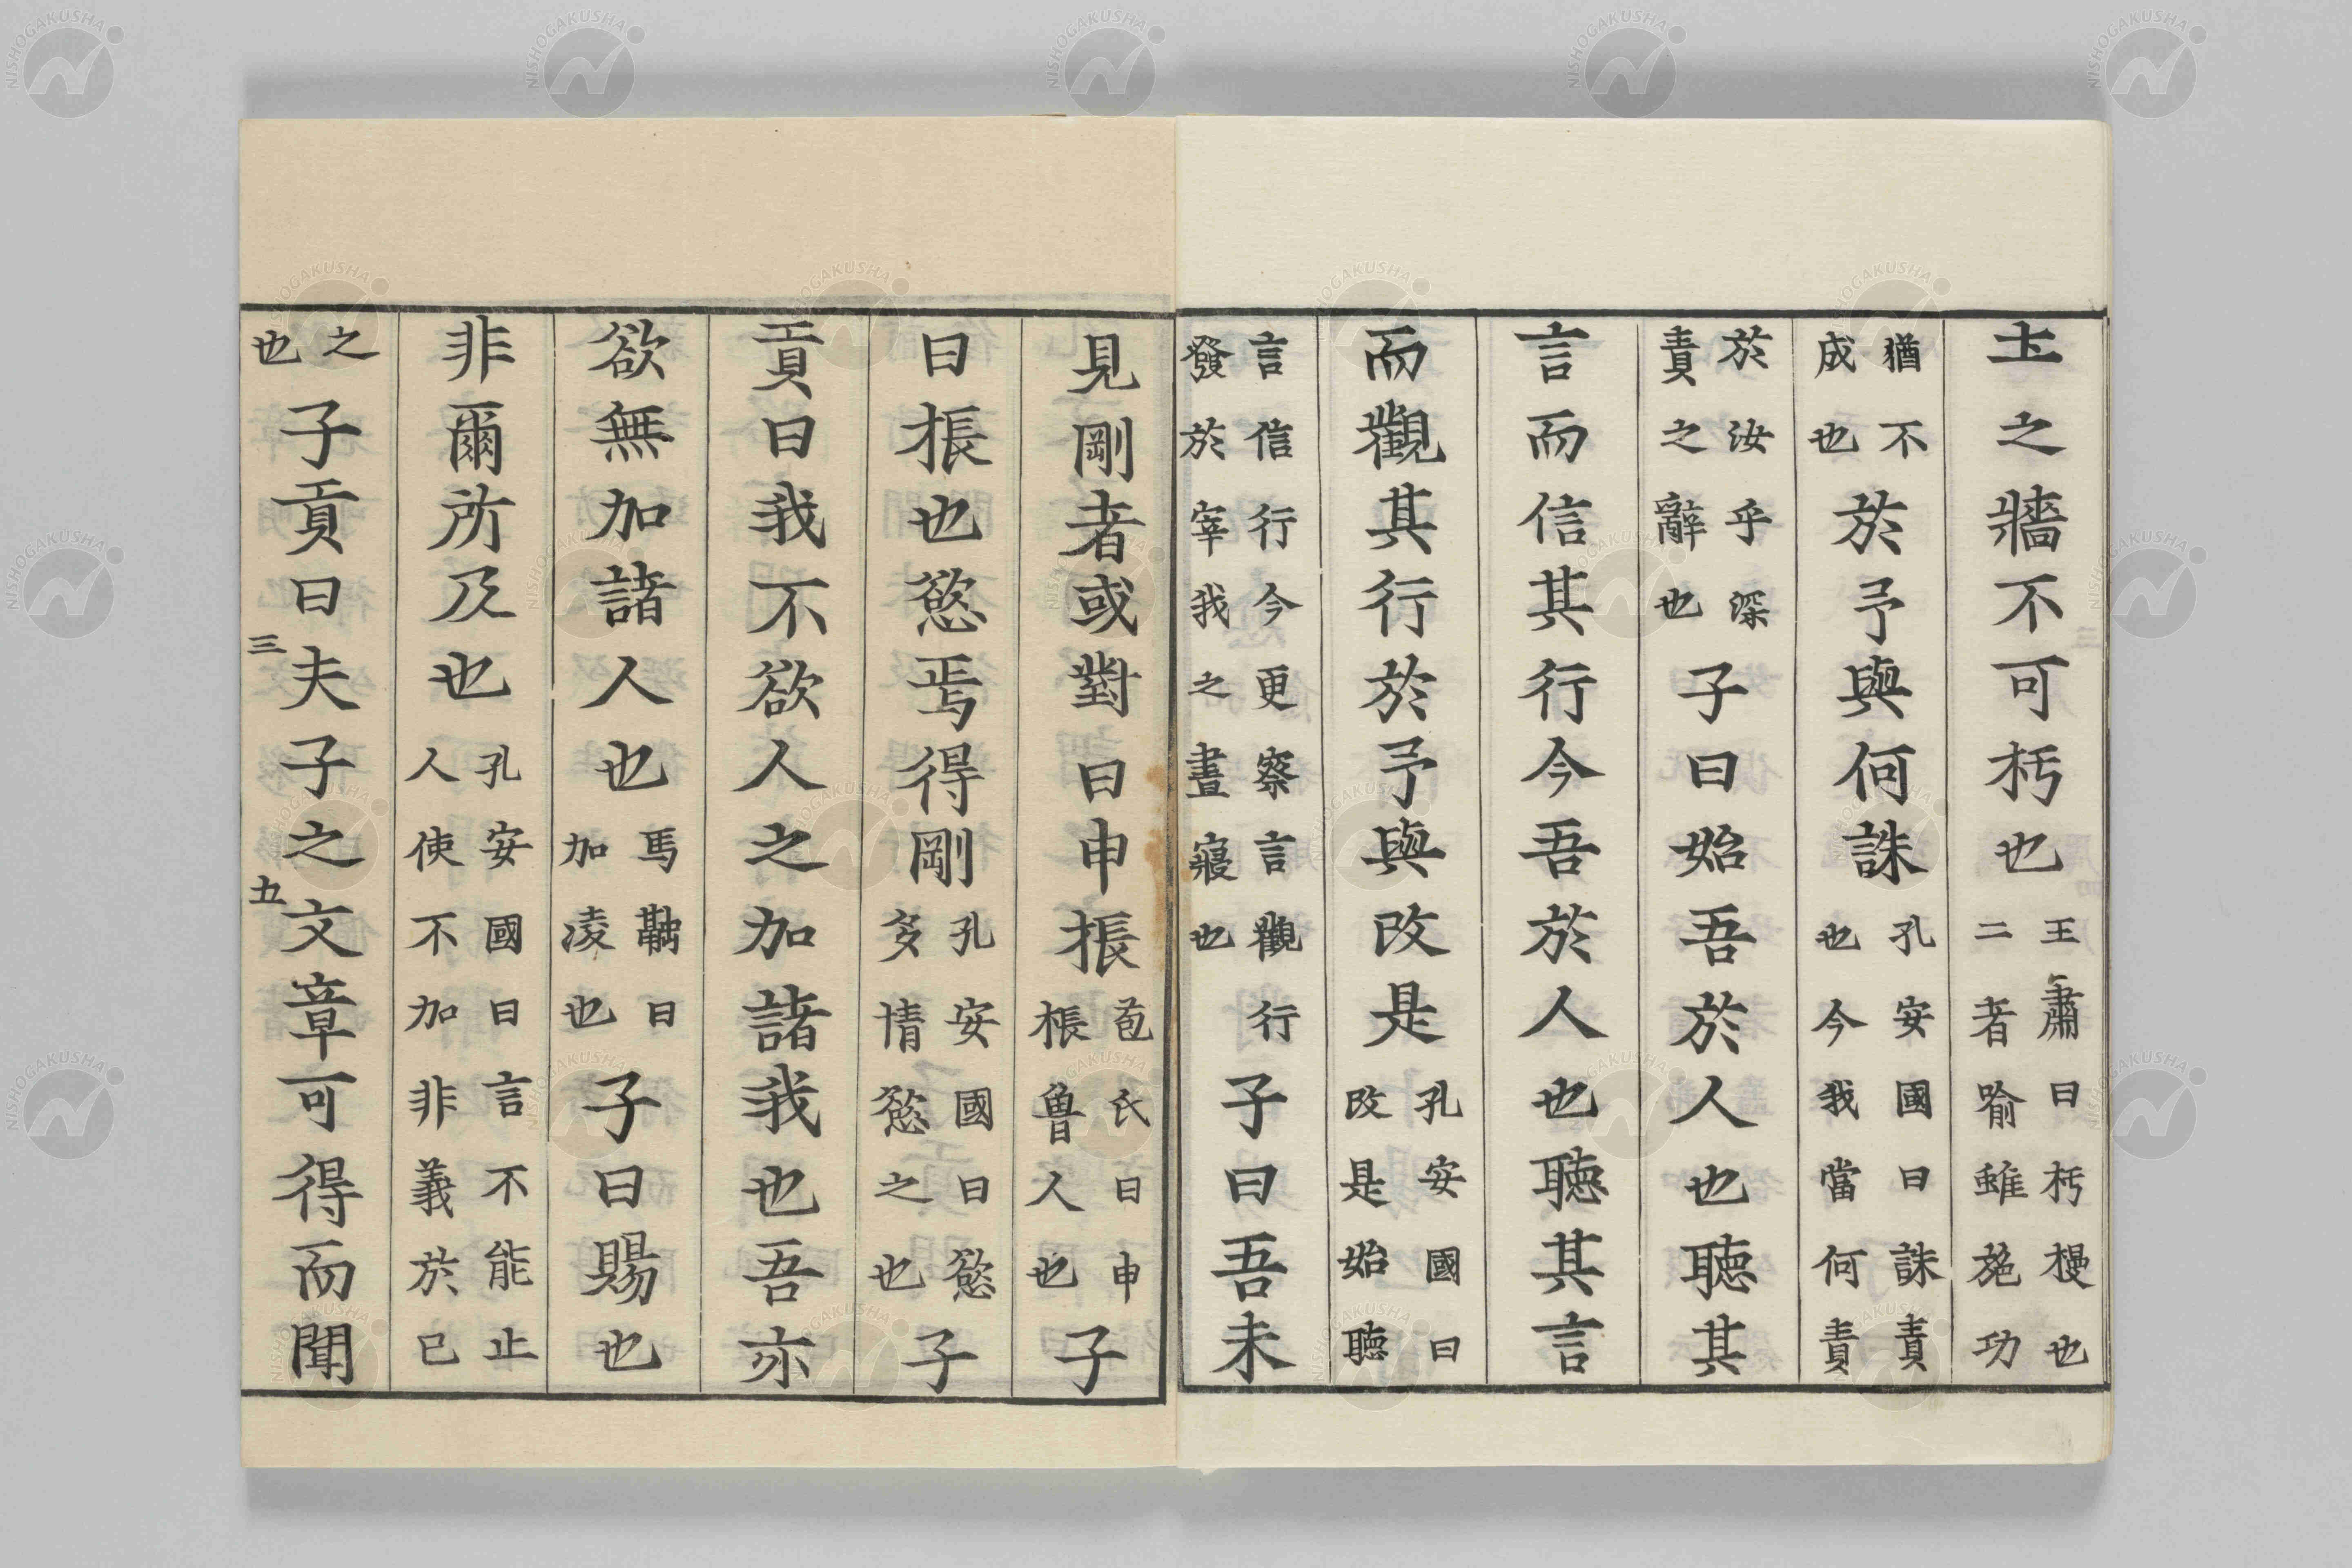 圡之牆不可杇也王肅曰杇槾也二者喻雖施功
猶不成也於予與何誅孔安國曰誅責也今我當何責
於汝乎深責之辭也子曰始吾於人也聽其
言而信其行今吾於人也聽其言
而觀其行於予與改是孔安國曰改是始聽
言信行今更察言觀行發於宰我之晝寢也子曰吾未
見剛者或對曰申棖苞氏曰申棖魯人也子
曰棖也慾焉得剛孔安國曰慾多情慾之也子
貢曰我不欲人之加諸我也吾亦
欲無加諸人也馬融曰加凌也子曰賜也
非爾所及也孔安國曰言不能止人使不加非義於己
之也子貢曰夫子之文章可得而聞
三
五
NISHOGAKUSHA